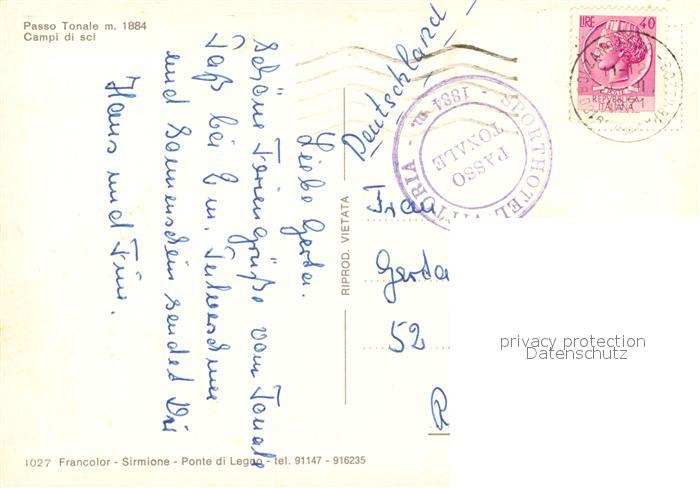 Passo Tonale m. 1884
Campi di sci
Liebe Gerda.
Schöne Feriengrüße vom Tonale
Paß bei 2 m. Pulverschnee
und Sonnenschein sendet Dir
Hans und Fini.
RIPROD. VIETATA
Deutschland
Frau
Gerda
52
LIRE 40
REPVBBLICA
ITALIANA
SPORTHOTEL VITTORIA - m. 1884 -
PASSO
TONALE
privacy protection
Datenschutz
1027 Francolor - Sirmione - Ponte di Legno - tel. 91147 - 916235